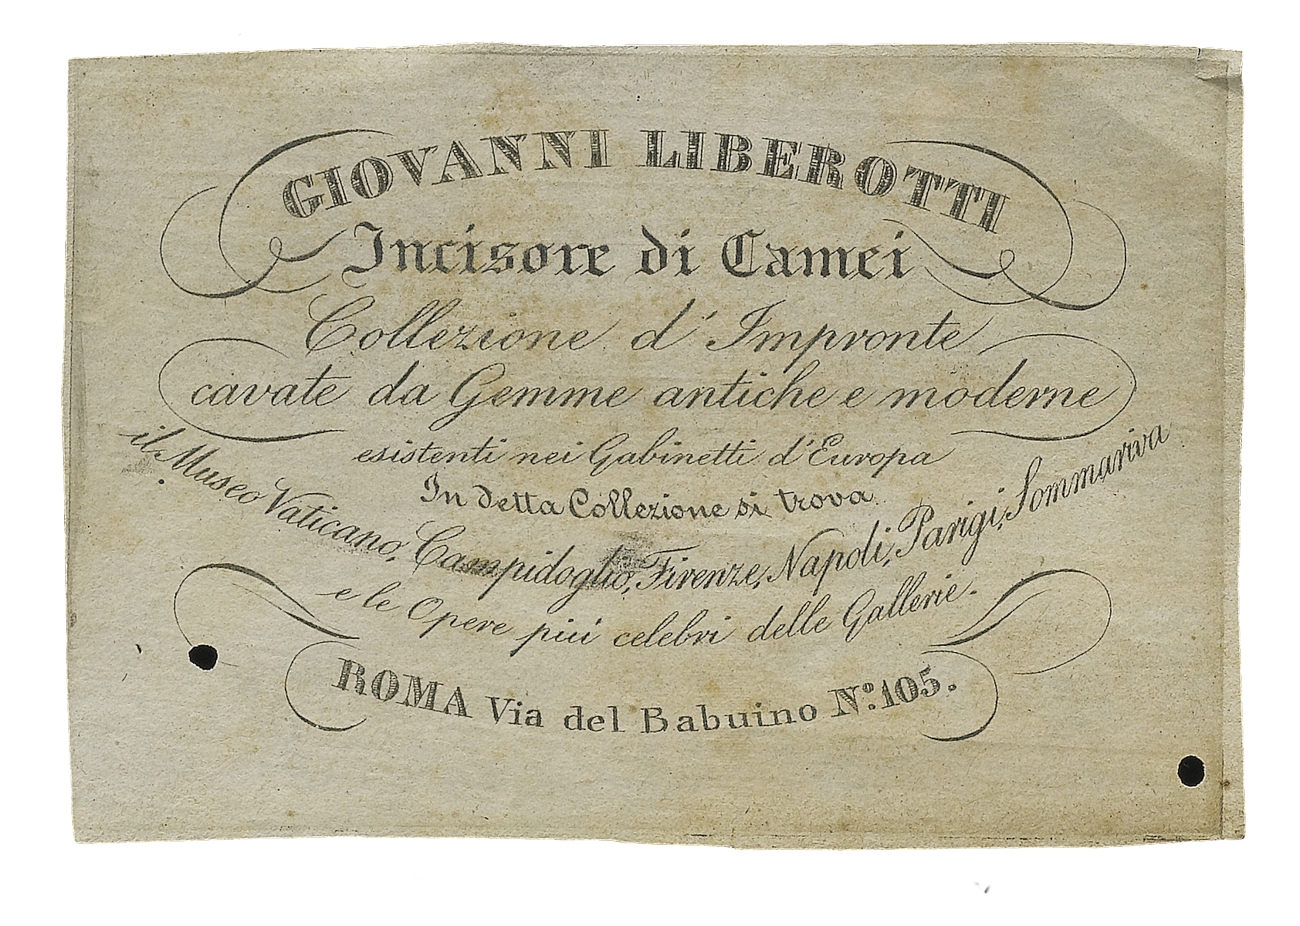 GIOVANNI LIBEROTTI
Incisore di Camei
Collezione d'Impronte
cavate da Gemme antiche e moderne
esistenti nei Gabinetti d'Europa
In detta Collezione si trova
il Museo Vaticano, Campidoglio, Firenze, Napoli, Parigi, Sommariva
e le Opere piú celebri delle Gallerie.
ROMA Via del Babuino Nº. 105.